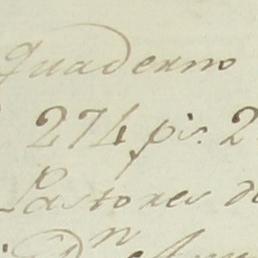 Quaderno
274 ps. 2
Pastores de
Dn